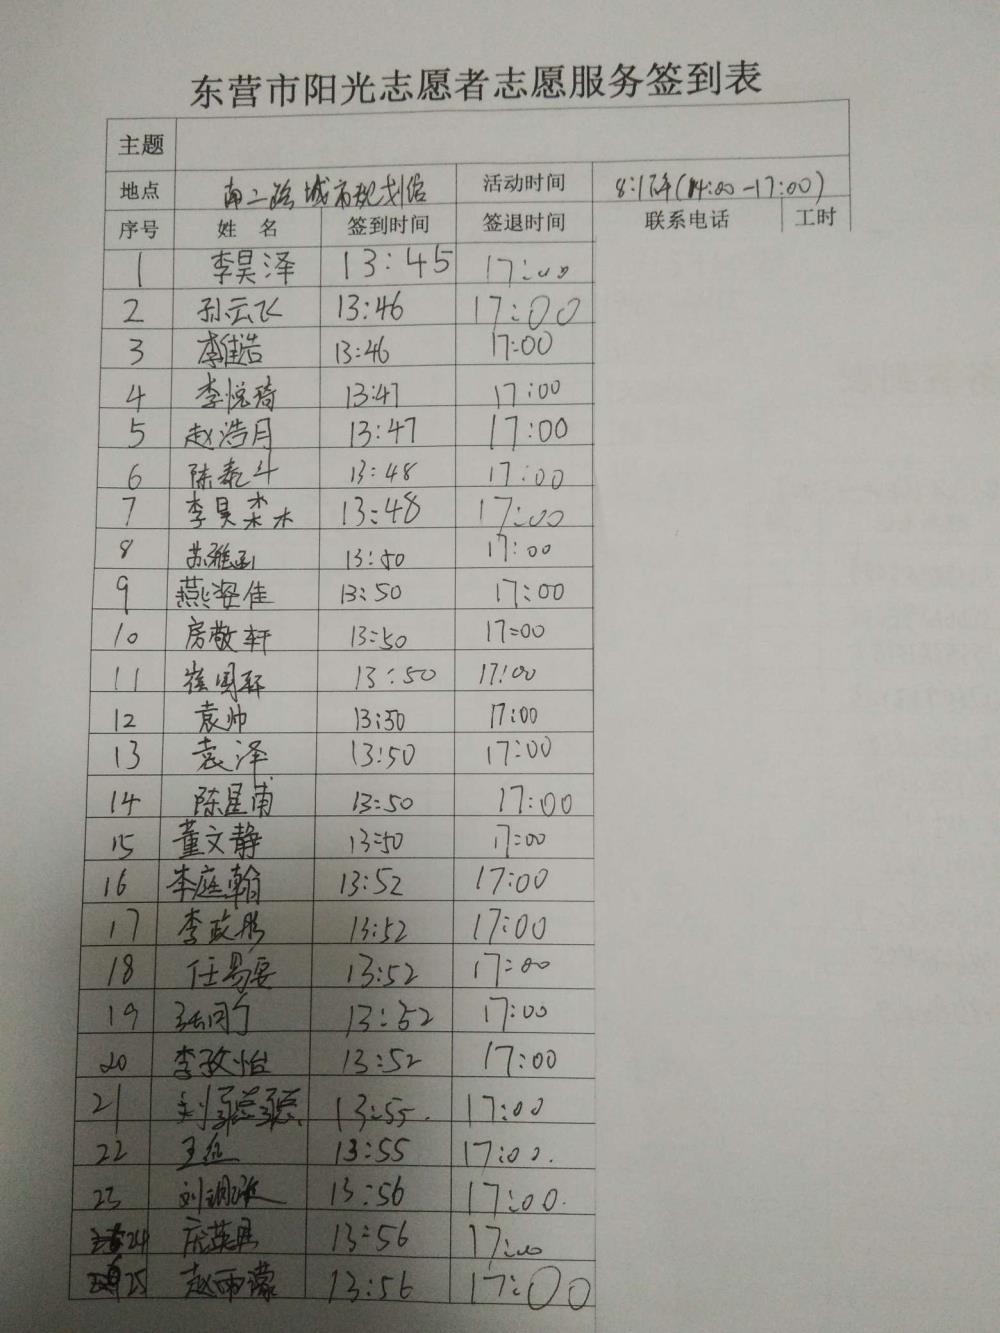 东营市阳光志愿者志愿服务签到表
主题
地点 南二路城市规划馆 活动时间 8:1下午(14:00-17:00)
序号 姓名 签到时间 签退时间 联系电话 工时
1 李昊泽 13:45 17:00
2 孙云飞 13:46 17:00
3 李佳浩 13:46 17:00
4 李悦琦 13:47 17:00
5 赵浩月 13:47 17:00
6 陈泰斗 13:48 17:00
7 李昊 13:48 17:00
8 苏雅函 13:50 17:00
9 燕姿佳 13:50 17:00
10 房敬轩 13:50 17:00
11 轩 13:50 17:00
12 袁帅 13:50 17:00
13 袁泽 13:50 17:00
14 陈星甫 13:50 17:00
15 董文静 13:50 17:00
16 李庭翰 13:52 17:00
17 李政彤 13:52 17:00
18 任 13:52 17:00
19 13:52 17:00
20 李孜怡 13:52 17:00
21 刘 13:55. 17:00
22 王 13:55 17:00.
23 刘 13:56 17:00.
24 13:56 17:00
25 赵雨濛 13:56 17:00